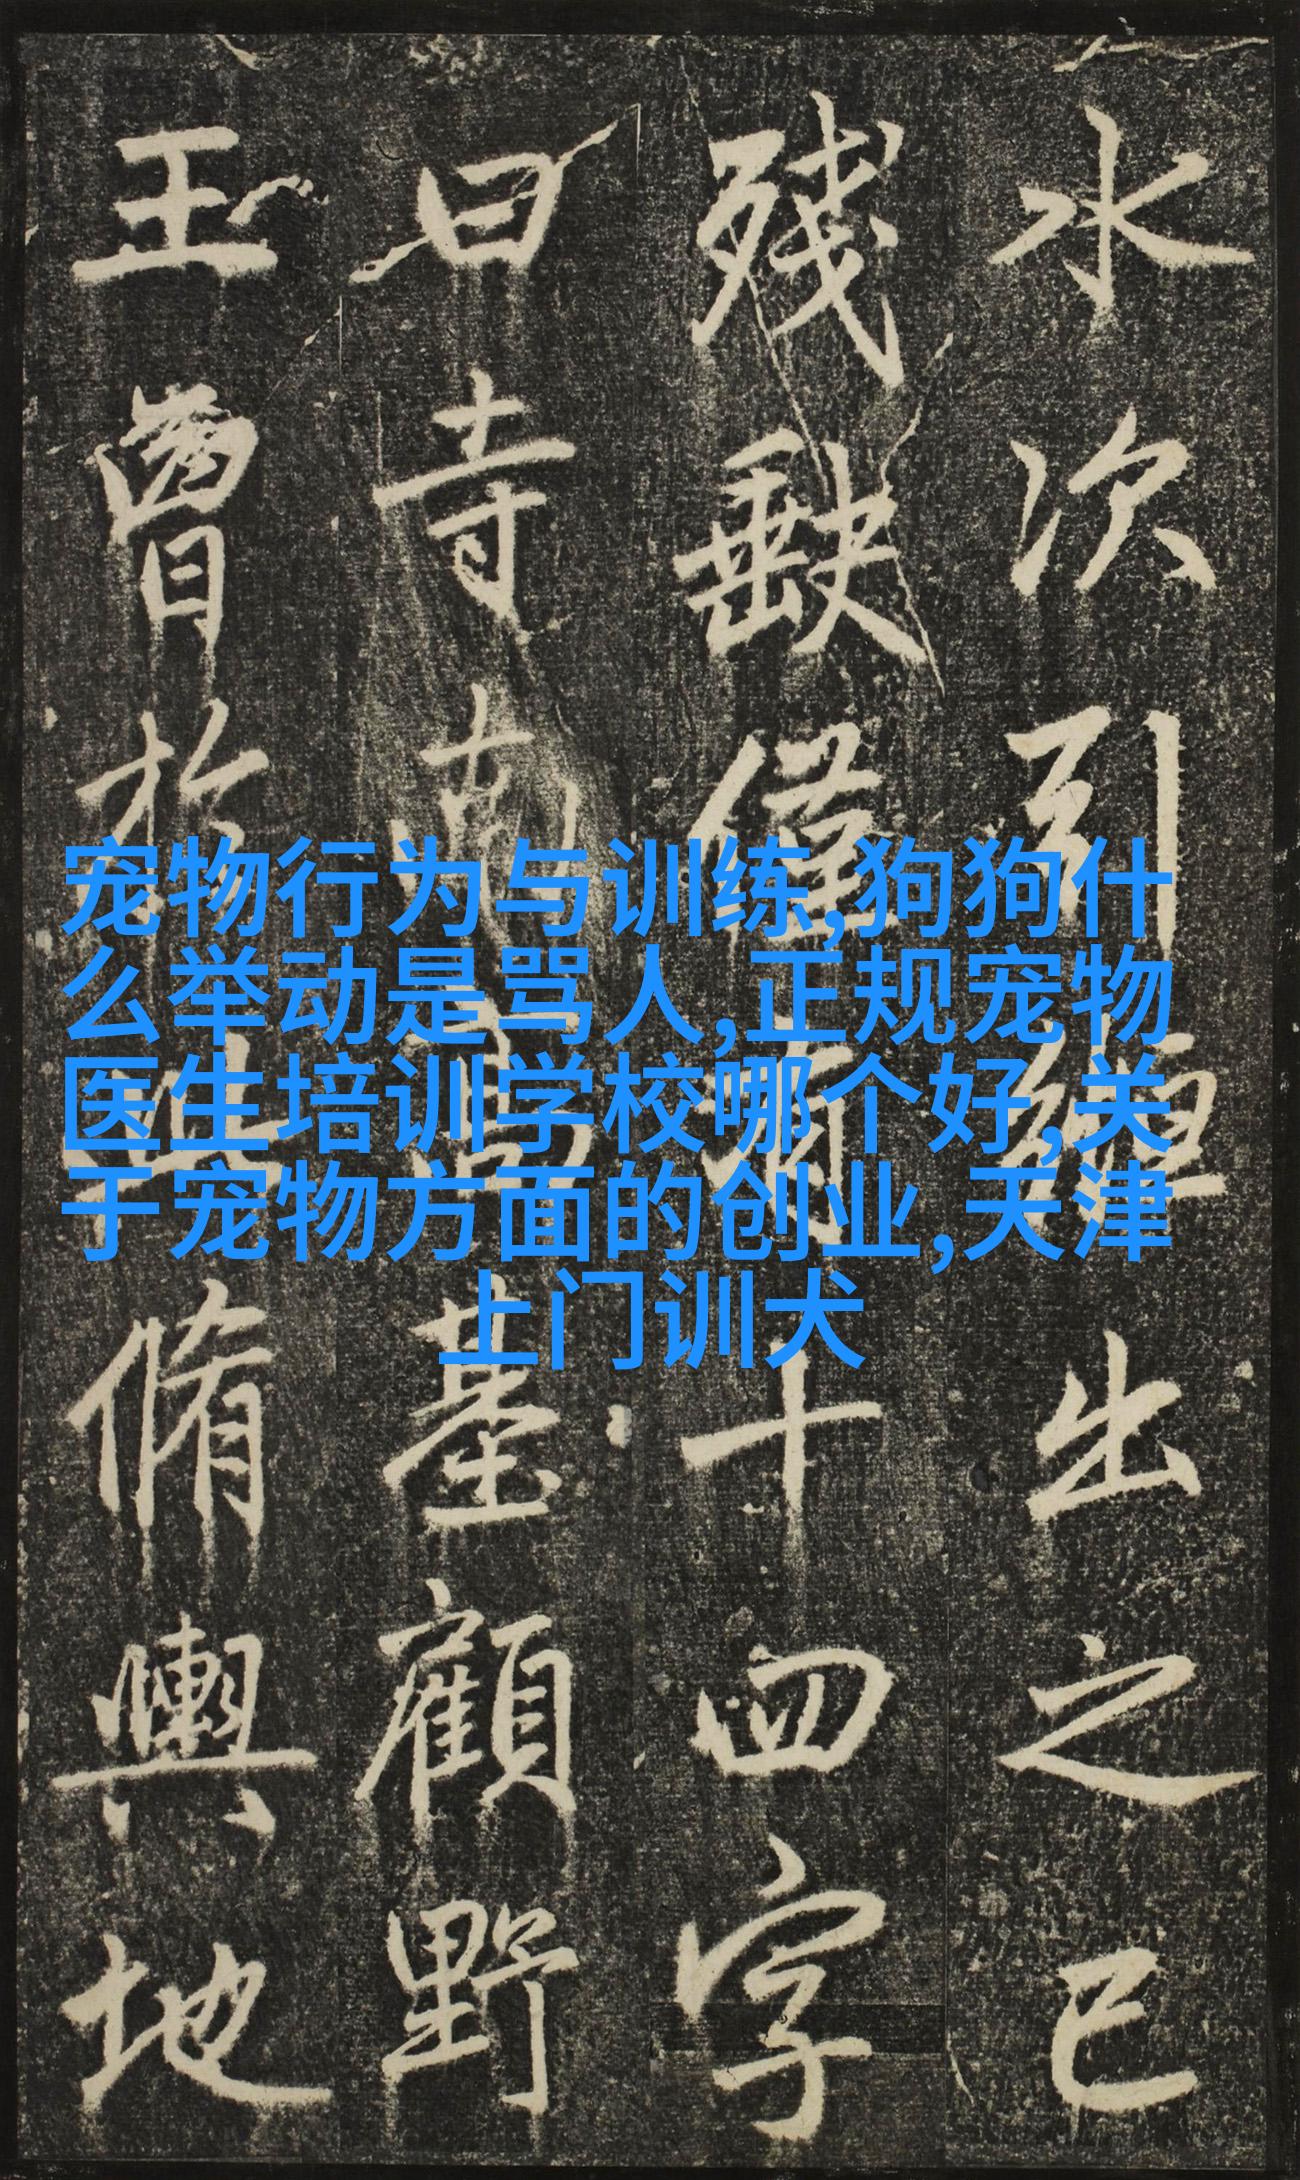 水次引出之已
殘缺僅有十四字
曰寺南高基顧野
王曾於此脩輿地
宠物行为与训练,狗狗什
么举动是骂人,正规宠物
医生培训学校哪个好,关
于宠物方面的创业,天津
上门训犬